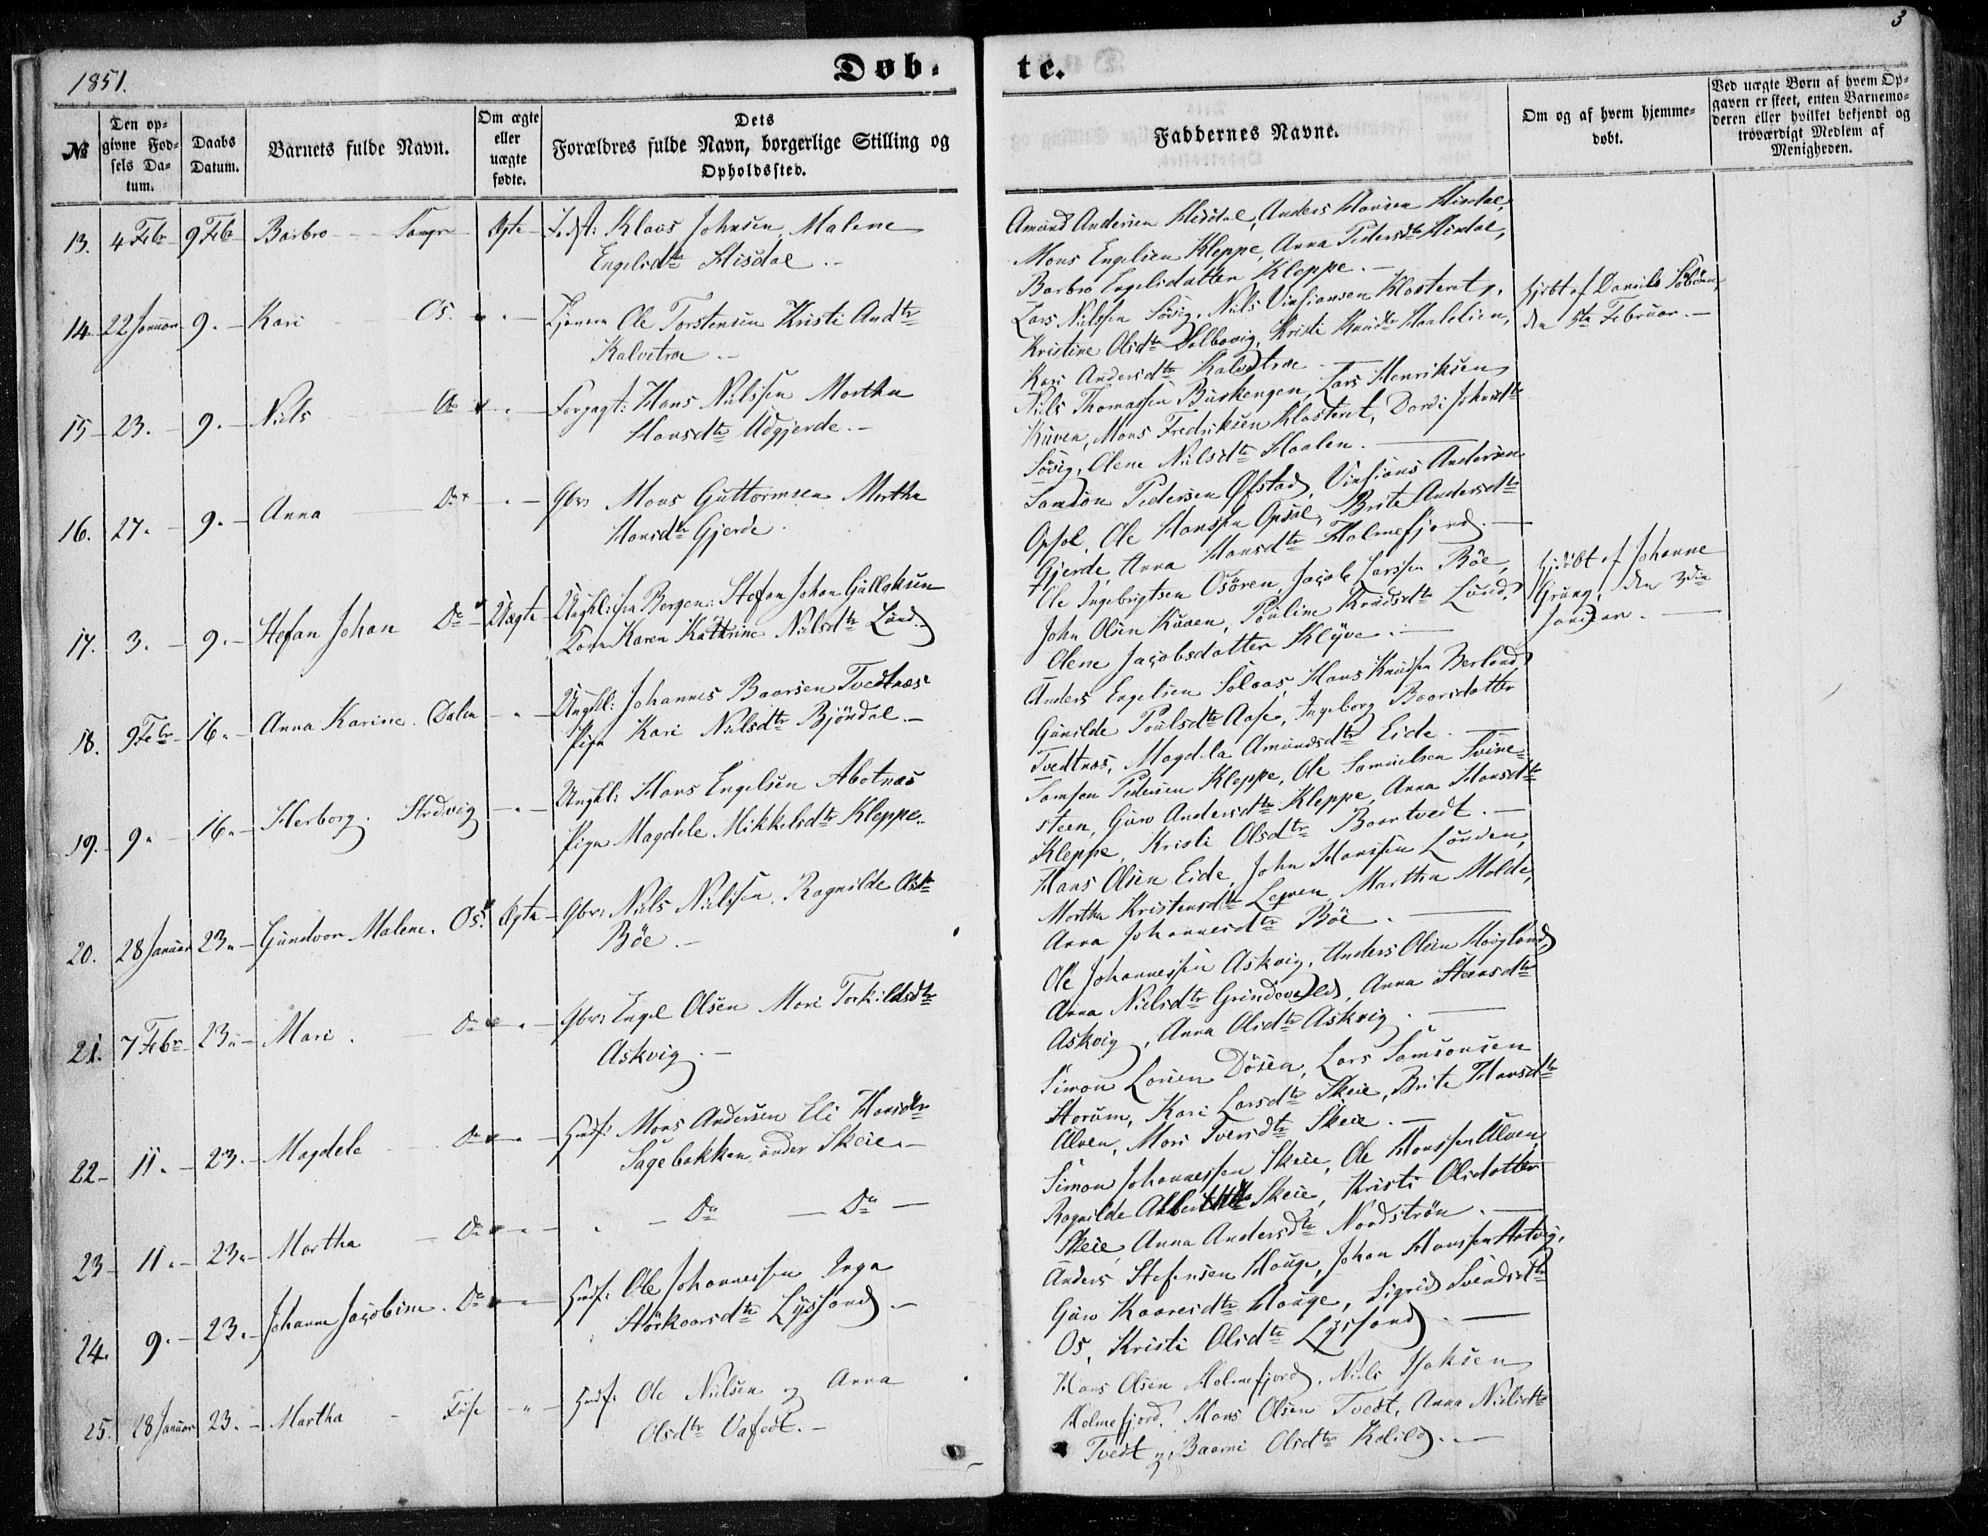 1851.
Døb-
te.
3
№
Den op-
givne Fød-
sels Da-
tum.
Daabs
Datum.
Barnets fulde Navn.
Om ægte
eller
uægte
fødte.
Dets
Forældres fulde Navn, borgerlige Stilling og
Opholdssted.
Faddernes Navne.
Om og af hvem hjemme-
døbt.
Ved uægte Børn af hvem Op-
gaven er skeet, enten Barnemo-
deren eller hvilket bekjendt og
troværdigt Medlem af
Menigheden.
13. 4 Febr 9 Feb Barbro Ægte Klaas Johnsen, Malene
Engelsdtr Hisdal.
Amund Andersen Hisdal, Anders Hansen Hisdal,
Mons Engelsen Kleppe, Anna Pedersdtr Hisdal,
Barbro Engelsdatter Kleppe.
14. 22 Januar 9. Kari Os. Ole Torstensen Kristi Andtr
Kalvetræ.
Lars Nilssen Søvig, Nils Vinsiansen Klosteret,
Kristine Olsdtr Solbovig, Kristi
Kari Andersdtr Kalvetræ.
Hjdbt af Daniel
den 5te Februar.
15 23. 9. Niels Do Forpagt: Hans Nilssen Martha
Hansdtr Udgjerde.
Niels Thomassen Buskengen, Lars Henriksen
Kuven, Mons Fredriksen Klosteret, Dordi Johnsdtr
Søvig, Olene Nilsdtr Haalen.
16. 27. 9. Anna Do Gbr: Mons Guttormsen Martha
Hansdtr Gjerde.
Samson Pedersen Øfstad, Vinsians Andersen
Opsal, Ole Hanssen Opsal, Brite Andersdtr
Gjerde Anna Hansdtr Holmefjord.
17. 3. 9. Stefan Johan Do Uægte Ungkl: fra Bergen: Stefan Johan Gullaksen
Karen Kathrine Nilsdtr Lund.
Ole Ingebrigtsen Osøren, Jacob Larssen Bøe,
John Olsen Kuven, Pauline Knudsdtr Lund,
Olene Jacobsdatter Klyve.
Hjdøbt af Johanne
Grung, den 3die
Januar.
18. 9 Febr 16. Anna Karine. Dalen Ungkl: Johannes Baarsen Tvedtnæs
Pige Kari Nilsdtr Bjøndal.
Anders Engelsen Solaas, Hans Knudsen Berland
Gunilde Poulsdtr Aase, Ingeborg Baarsdatter
Tvedtnæs, Magdela Amundsdtr Eide.
19. 9. 16. Herborg. Strdvig Ungkl: Hans Engelsen Abotnæs
Pige Magdele Mikkelsdtr Kleppe.
Samson Pedersen Kleppe, Ole Samuelsen Svine-
steen, Guro Andersdtr Kleppe, Anna Hansdtr
Kleppe, Kristi Olsdtr Baartvedt.
20. 28 Januar 23. Gundvor Malene. Os. Ægte Gbr: Niels Nielssen, Ragnilde Olsdtr
Bøe.
Hans Olsen Eide, John Hanssen Lunden,
Martha Kristensdtr Lepsen, Martha Molde,
Anna Johannesdtr Bøe.
21. 7 Febr 23. Mari. Do Gbr: Engel Olsen Mari Torkildsdtr
Askvig.
Ole Johannessen Askvig, Anders Olsen Haugland
Anna Nielsdtr Grindevold, Anna Steensdtr
Askvig, Anna Olsdtr Askvig.
22 11. 23. Magdele Do Husf: Mons Andersen Eli Hansdtr
Sagebakken under Skeie.
Simon Larsen Døsen, Lars Samsonsen
Storum, Kari Larsdtr Skeie, Brite Hansdtr
Ulven, Mari Iversdtr Skeie.
23 11. 23. Martha Do Do Do
Simon Johannessen Skeie, Ole Hanssen Ulven
Ragnilde Skeie, Kristi Olsdatter
Skeie, Anna Andersdtr Nordstrøn.
24. 9. 23. Johanne Jacobine. Do Husf: Ole Johannessen Inga
Størkaarsdtr Lysfand.
Anders Stefensen Hauge, Johan Hanssen Hatvig,
Guro Kaaresdtr Hauge, Sigrid Svendsdtr
Os, Kristi Olsdtr Lysfand.
25. 28 Januar 23. Martha Fuse Husf: Ole Nielsen og Anna
Olsdtr Vafedt.
Hans Olsen Holmefjord, Niels Isaksen
Holmefjord, Hans Olsen Tvedt, Anna Nielsdtr
Tvedt og Baarni Olsdtr Kolild.